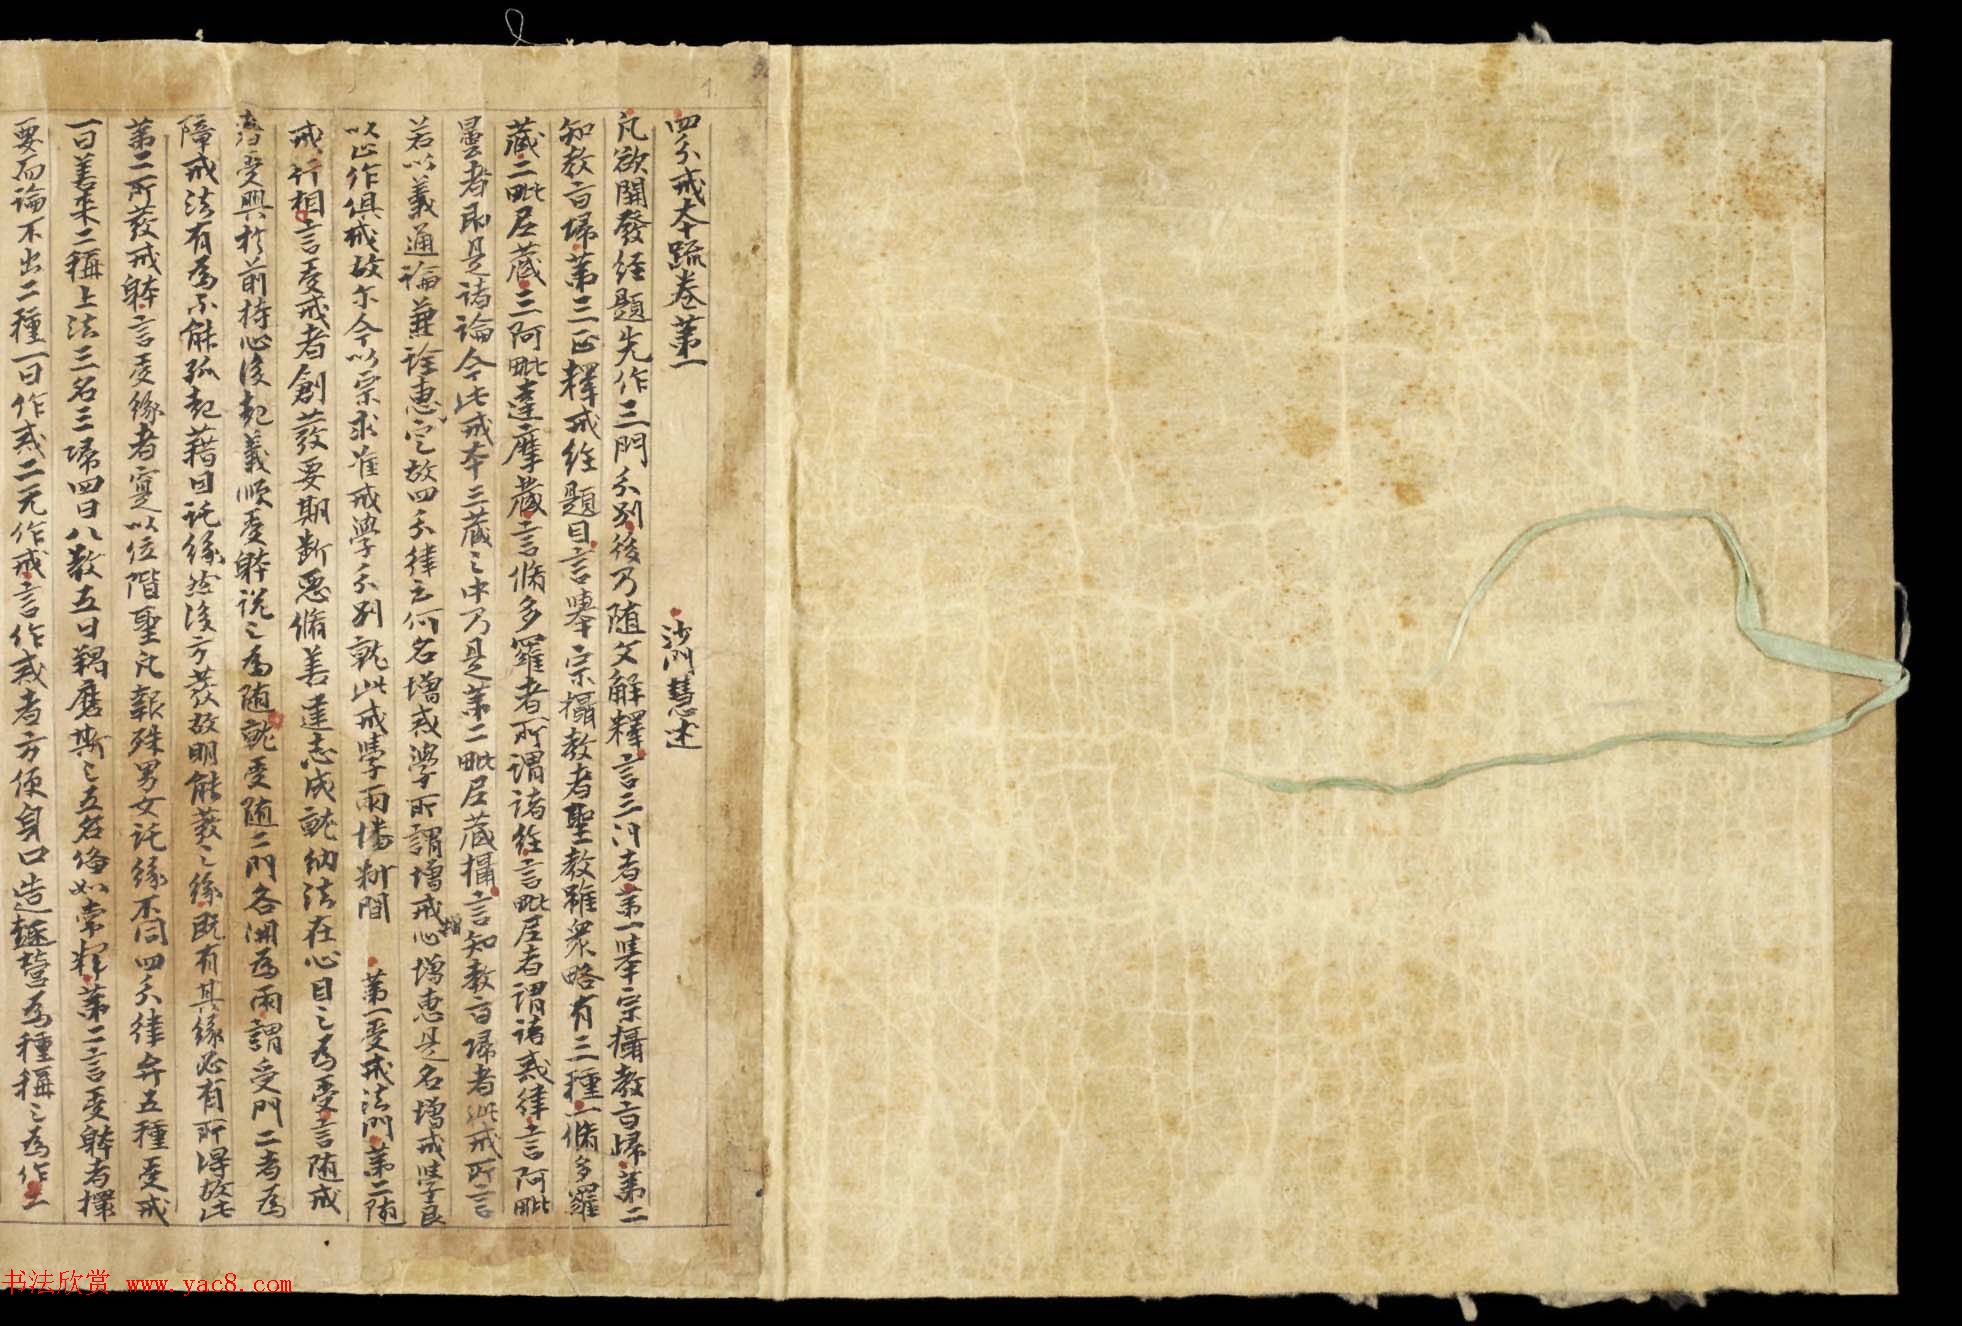 四分戒本疏卷第一 沙門慧述
凡欲開發經題先作三門分別後乃随文解釋言三门者第一舉宗攝教旨歸第二
知教旨歸第三正釋戒經題目言舉宗攝教者聖教雖衆略有三種一脩多羅
藏二毗尼藏三阿毗達摩藏言脩多羅者所謂諸經言毗尼者謂諸戒律言阿毗
曇者即是諸論今此戒本三藏之中乃是第二毗尼藏攝言知教旨歸者此戒所言
若以義通論兼詮惠定故四分律云何名增戒學所謂增戒心增惠是名增戒學良
以止作俱戒故尔今以宗求准戒學分別就此戒學兩場料簡 第一受戒法門第二随
戒行相言受戒者創發要期断惡脩善建志成就納法在心目之為受言随戒
者受興於前持心後起義順受躰說之為随就受随二門各開為兩謂受門二者為
障戒法有為不能孤起藉因託緣然後方發故明能發之緣既有其緣必有所得故此
第二所發戒躰言受緣者寔以位階聖凡報殊男女託緣不同四分律弁五種受戒
一曰善来二稱上法三名三歸四曰八敬五曰羯磨斯之五名俻如常釋第二言受躰者擇
要而論不出二種一曰作戒二无作戒言作戒者方便身口造趣營為種稱之為作
书法欣赏 www.yac8.com